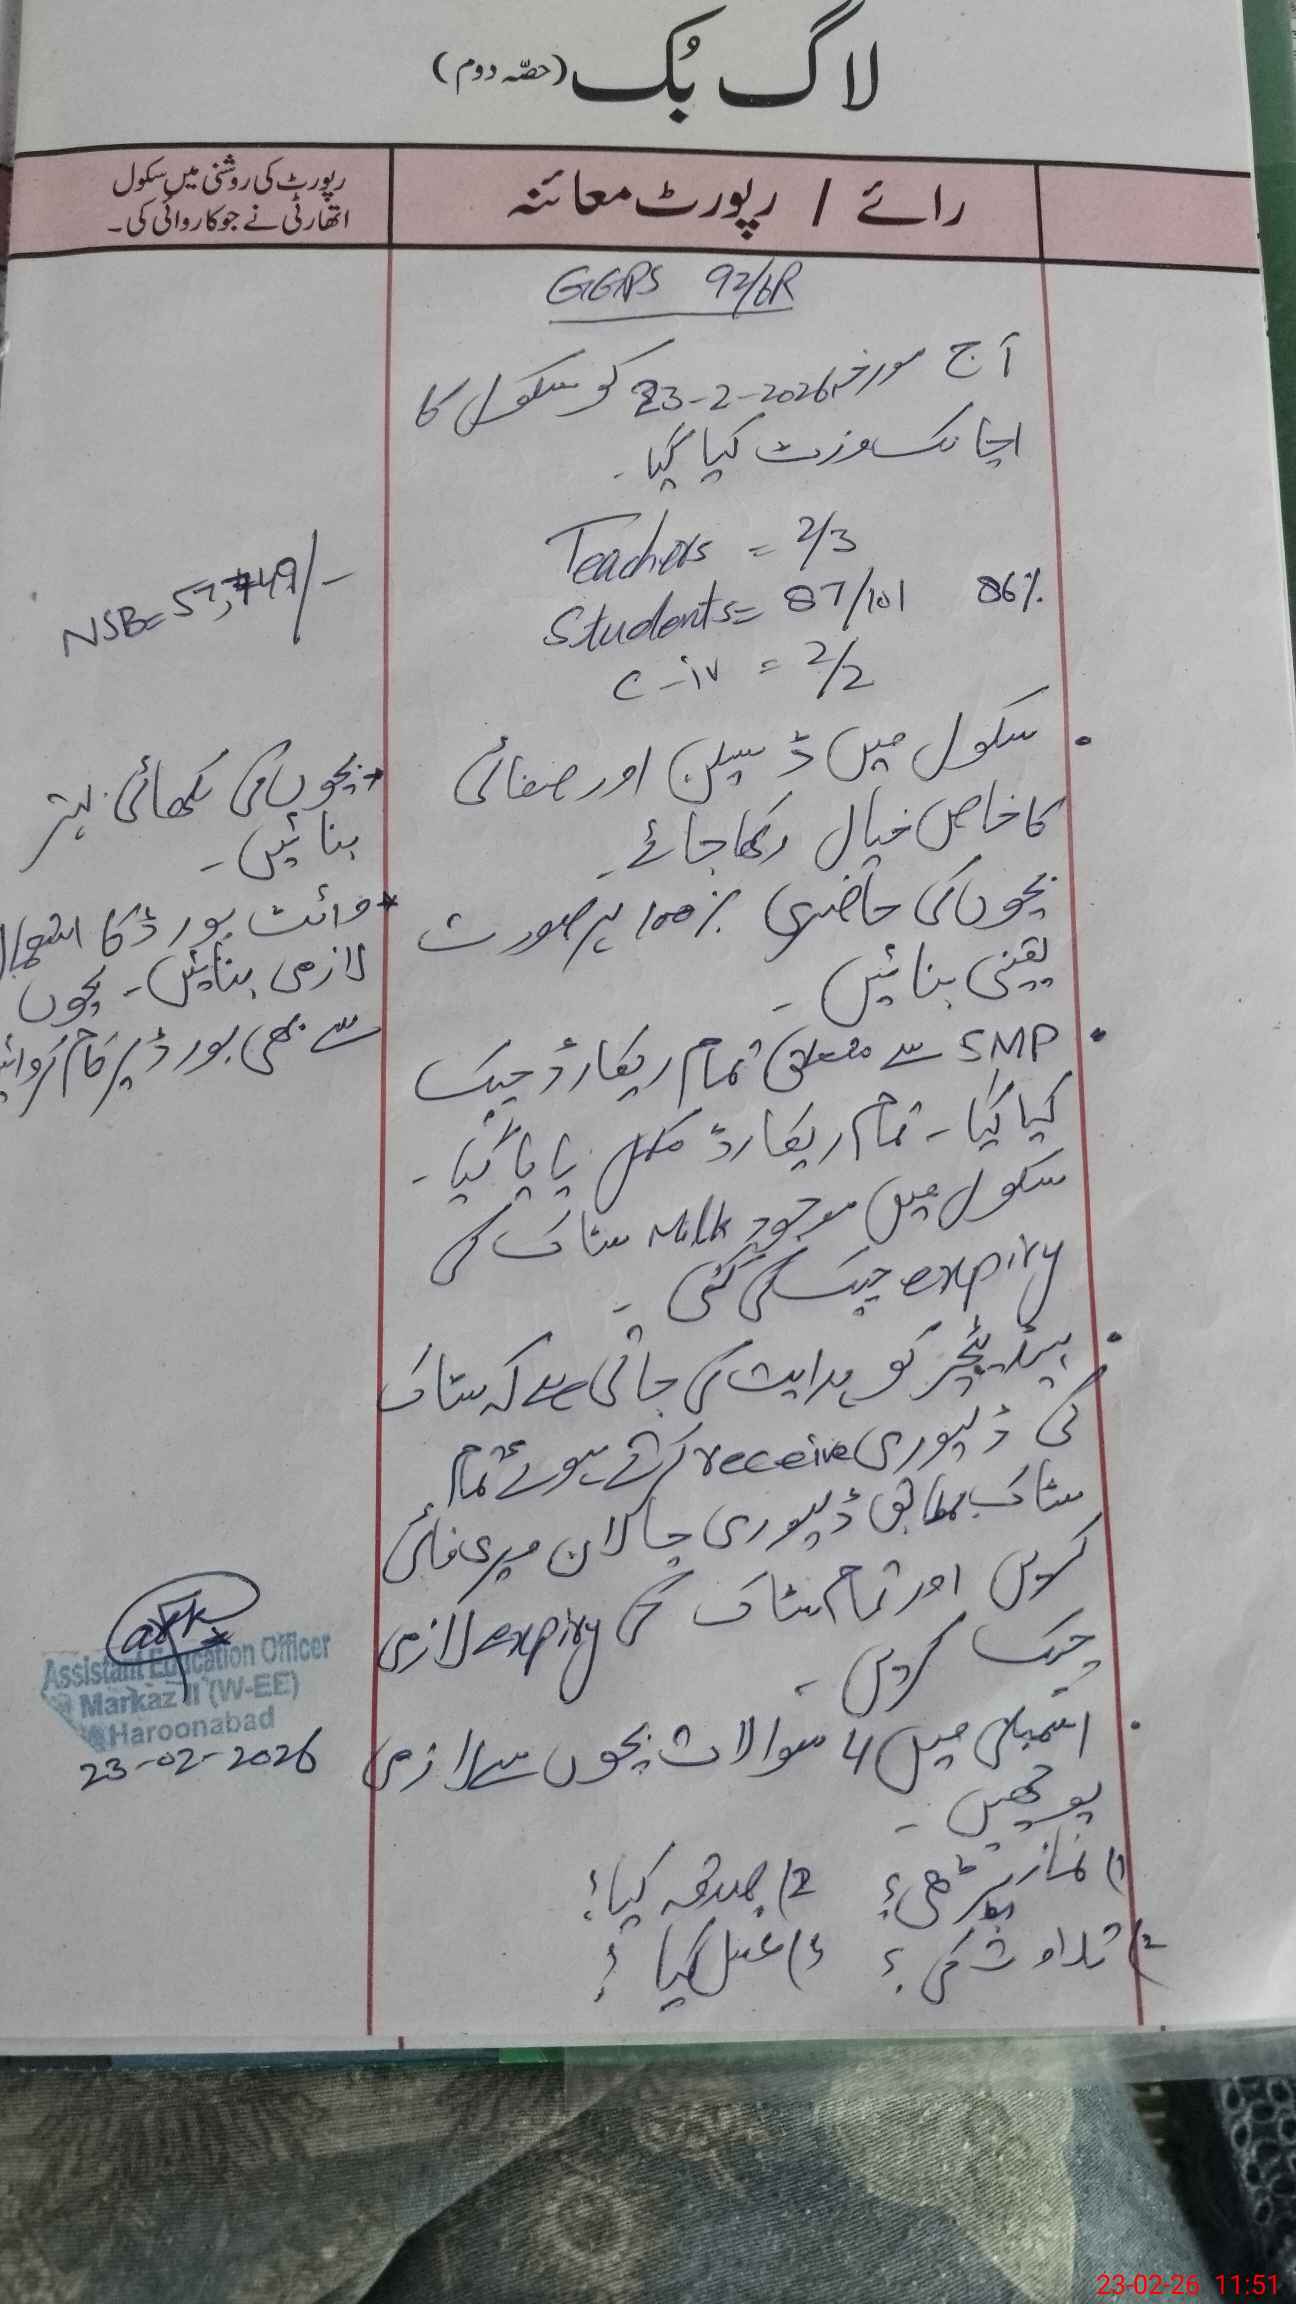 لاگ بُک (حصّہ دوم)
رائے / رپورٹ معائنہ
رپورٹ کی روشنی میں سکول
اتھارٹی نے جو کاروائی کی۔
GGPS 92/6R
آج مورخہ 23-2-2026 کو سکول کا
اچانک وزٹ کیا گیا۔
Teachers = 2/3
Students = 87/101 86%
C-iv = 2/2
• سکول میں ڈسپلن اور صفائی
کا خاص خیال رکھا جائے۔
بچوں کی حاضری 100% ہر صورت
یقینی بنائیں۔
• SMP سے متعلق تمام ریکارڈ چیک
کیا گیا۔ تمام ریکارڈ مکمل پایا گیا۔
سکول میں موجود Milk سٹاک کی
expiry چیک کی گئی۔
• ہیڈ ٹیچر کو ہدایت کی جاتی ہے کہ سٹاک
کی ڈلیوری receive کرتے ہوئے تمام
سٹاک بمطابق ڈلیوری چالان ویری فائی
کریں اور تمام سٹاک کی expiry لازمی
چیک کریں۔
• اسمبلی میں 4 سوالات بچوں سے لازمی
پوچھیں۔
1) نماز پڑھی؟ 2) صدقہ کیا؟
تلاوت کی؟ غسل کیا؟
NSB= 57,749/-
* بچوں کی لکھائی بہتر
بنائیں۔
* وائٹ بورڈ کا استعمال
لازمی بنائیں۔ بچوں
سے بھی بورڈ پر کام کروائیں
Assistant Education Officer
Markaz II (W-EE)
Haroonabad
23-02-2026
23-02-26 11:51